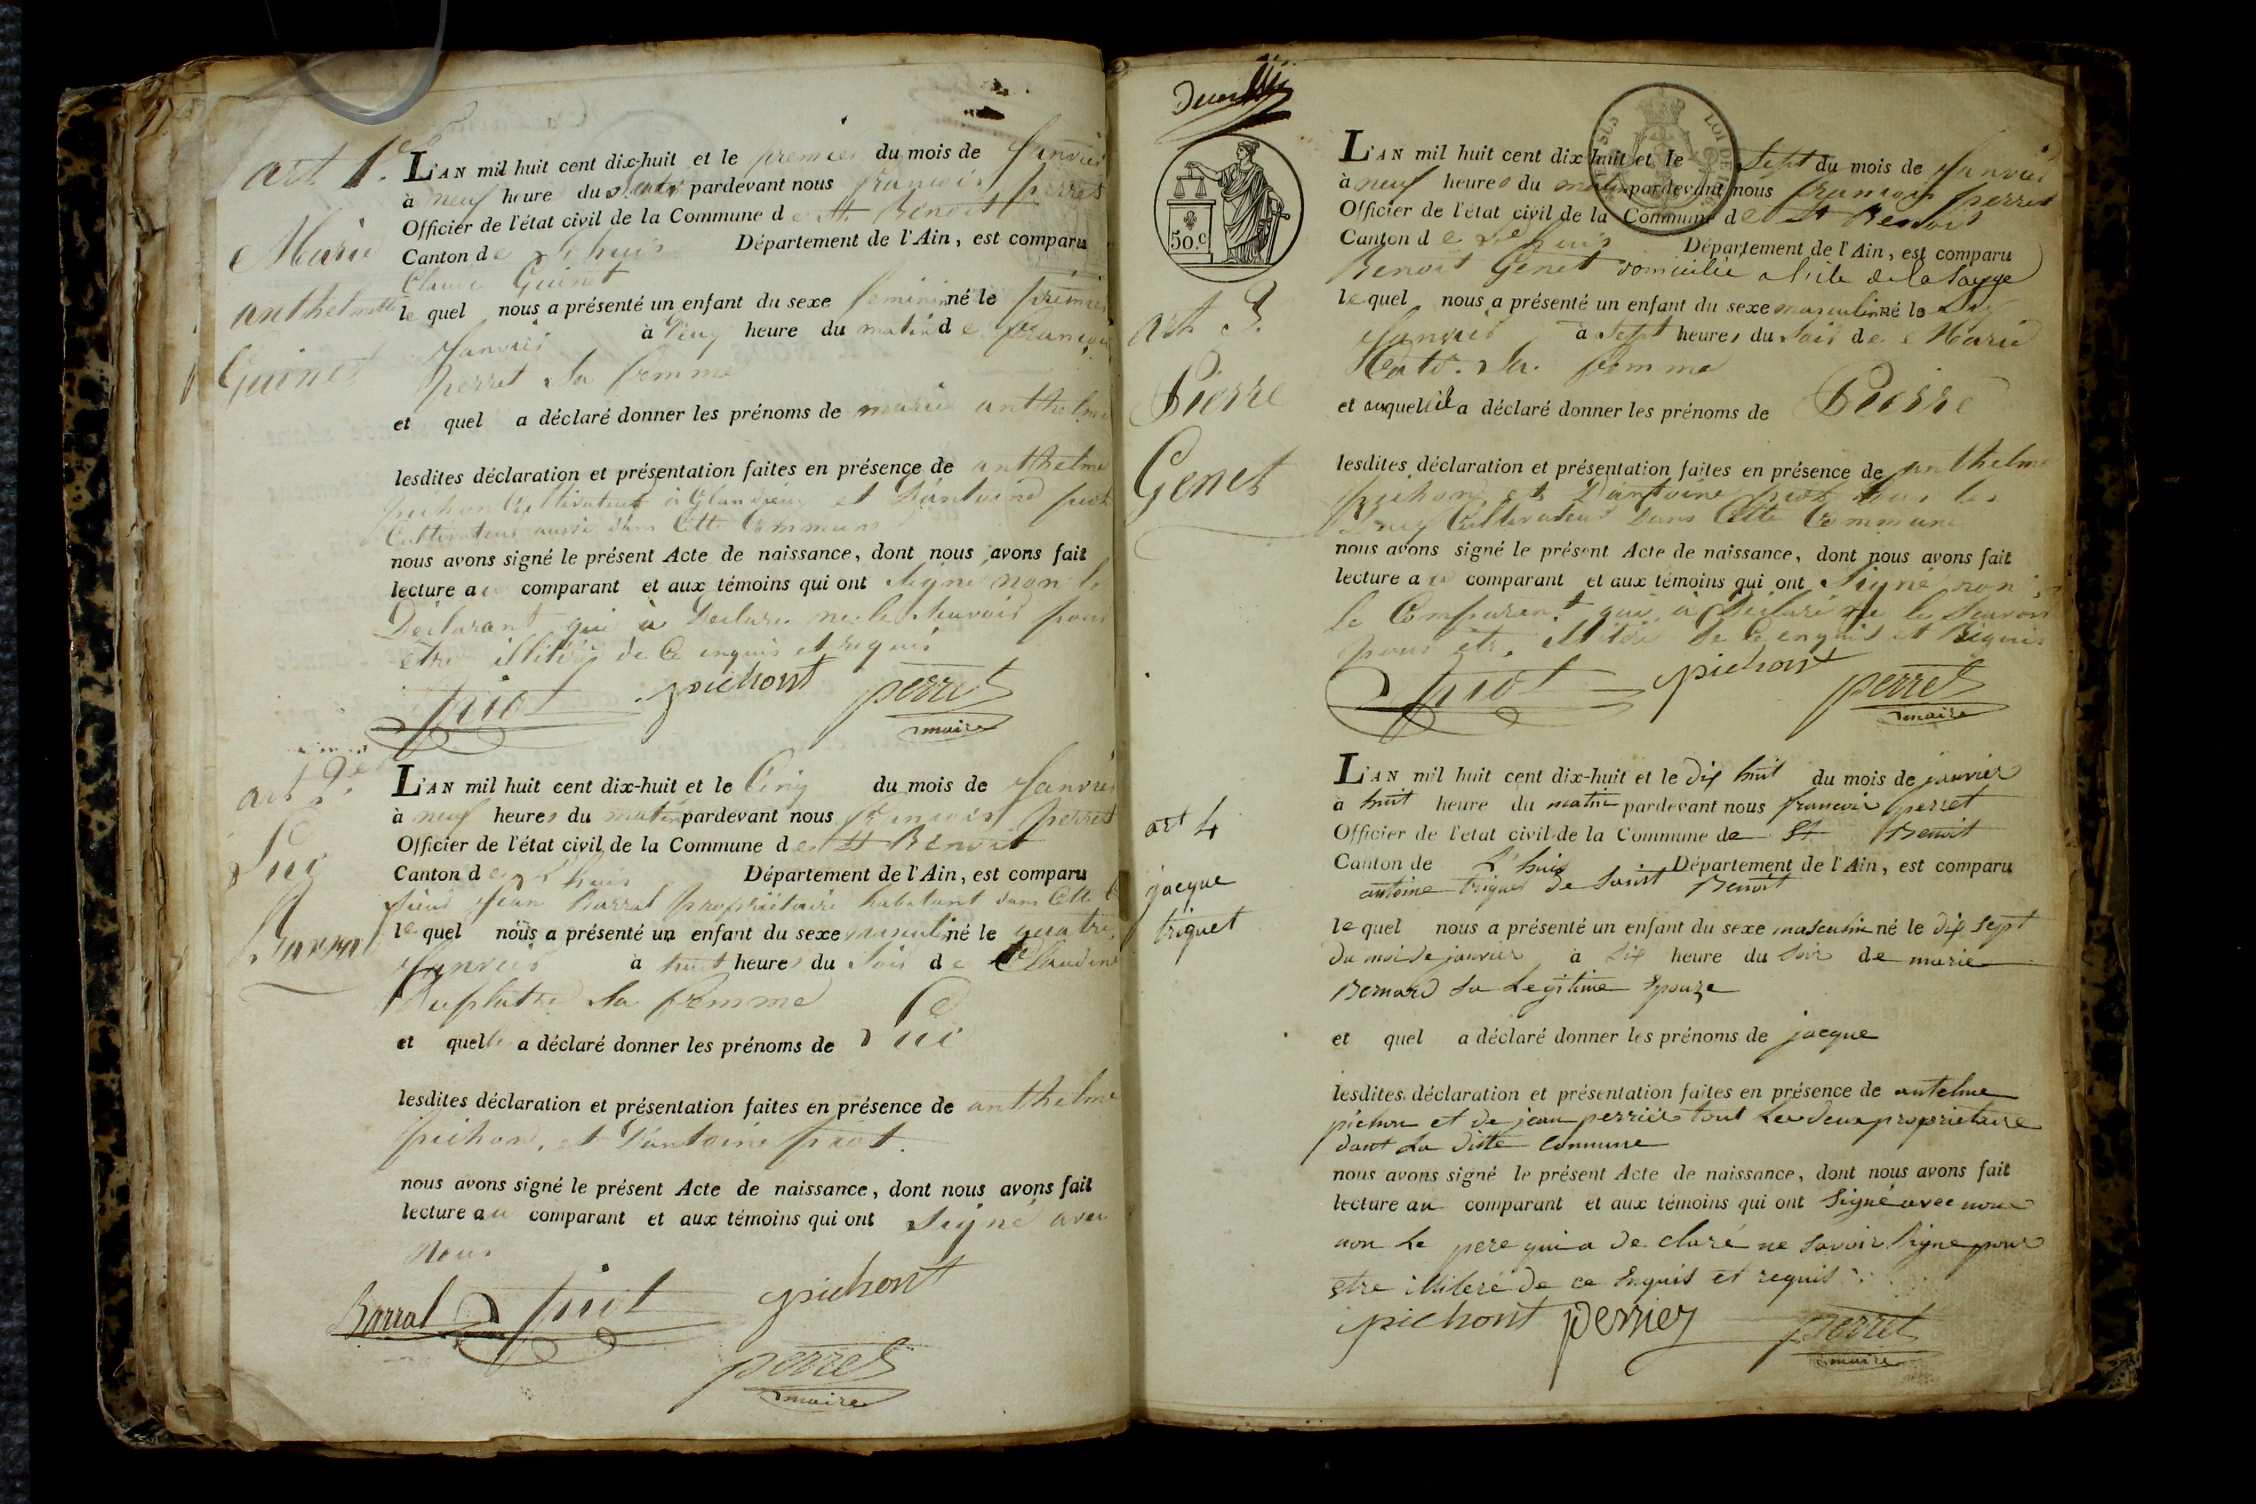 art 1er
Marie
anthelmette
Guinet
L'AN mil huit cent dix-huit et le premier du mois de Janvier
à neuf heure du matin pardevant nous francois perret
Officier de l'état civil de la Commune de St Benoit
Canton de Lhuis Département de l'Ain, est comparu
Claude Guinet
lequel nous a présenté un enfant du sexe feminin né le premier
Janvier à Cinq heure du matin de francoise
perret Sa femme
et quel a déclaré donner les prénoms de marie anthelme
lesdites déclaration et présentation faites en présence de anthelme
pichon Cultivateur à Glandieu et D'antoine piot
Cultivateur aussi dans Cette Commune
nous avons signé le présent Acte de naissance, dont nous avons fait
lecture au comparant et aux témoins qui ont Signé non le
Declarant qui à Declaré ne le Scavoir pour
etre illitéré de Ce enquis et requis
piot pichont perret
maire
art 2e
Barral
L'AN mil huit cent dix-huit et le Cinq du mois de Janvier
à neuf heures du matin pardevant nous francois perret
Officier de l'état civil de la Commune de St Benoit
Canton de Lhuis Département de l'Ain, est comparu
Sieur Jean Barral propriétaire habitant dans Cette C
lequel nous a présenté un enfant du sexe masculin né le quatre
Janvier à huit heures du Soir de Claudine
Duplatre Sa femme
et quelle a déclaré donner les prénoms de
lesdites déclaration et présentation faites en présence de anthelme
pichon, et D'antoine piot.
nous avons signé le présent Acte de naissance, dont nous avons fait
lecture au comparant et aux témoins qui ont Signé avec
Nous
Barral piot pichont
perret
maire
50.c
art 3.
Pierre
Genet
L'AN mil huit cent dix-huit et le Sept du mois de Janvier
à neuf heures du matin pardevant nous francois perret
Officier de l'état civil de la Commune de St Benoit
Canton de Lhuis Département de l'Ain, est comparu
Benoit Genet domicilié a l'ile de la Sauge
lequel nous a présenté un enfant du sexe masculin né le Six
Janvier à Sept heures du Soir de Marie
Sa femme
et auquel il a déclaré donner les prénoms de Pierre
lesdites déclaration et présentation faites en présence de anthelme
pichon et D'antoine piot tous les
Deux Cultivateur Dans Cette Commune
nous avons signé le présent Acte de naissance, dont nous avons fait
lecture au comparant et aux témoins qui ont Signé non
le Comparant qui à Déclaré ne le Scavoir
pour etre illitéré de Ce enquis et Requis
piot pichont perret
maire
art 4
jacque
triquet
L'AN mil huit cent dix-huit et le dix huit du mois de janvier
à huit heure du matin pardevant nous francois perret
Officier de l'état civil de la Commune de St Benoit
Canton de L'huis Département de l'Ain, est comparu
antoine triquet de Saint Benoit
lequel nous a présenté un enfant du sexe masculin né le dix sept
du moi de janvier à Six heure du Soir de marie
Bernard Sa Legitime Epouze
et quel a déclaré donner les prénoms de jacque
lesdites déclaration et présentation faites en présence de antelme
pichon et de jean perrier tout Les deux propriétaire
dant La ditte Commune
nous avons signé le présent Acte de naissance, dont nous avons fait
lecture au comparant et aux témoins qui ont Signé avec nous
non Le pere qui a de claré ne Savoir Signe pour
etre illiteré de ce Enquis et requis
pichont perrier perret
maire